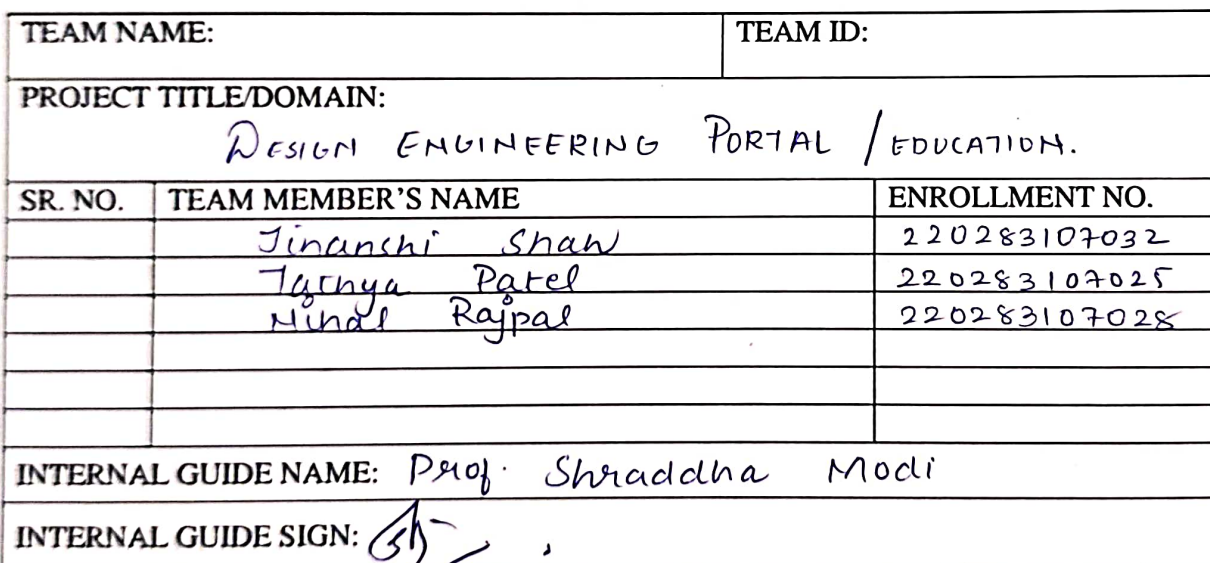 TEAM NAME: TEAM ID:
PROJECT TITLE/DOMAIN:
DESIGN ENGINEERING PORTAL / EDUCATION.
SR. NO. TEAM MEMBER'S NAME ENROLLMENT NO.
Jinanshi Shah 220283107032
Patel 220283107025
Rajpal 220283107028
INTERNAL GUIDE NAME: Prof. Shraddha Modi
INTERNAL GUIDE SIGN: